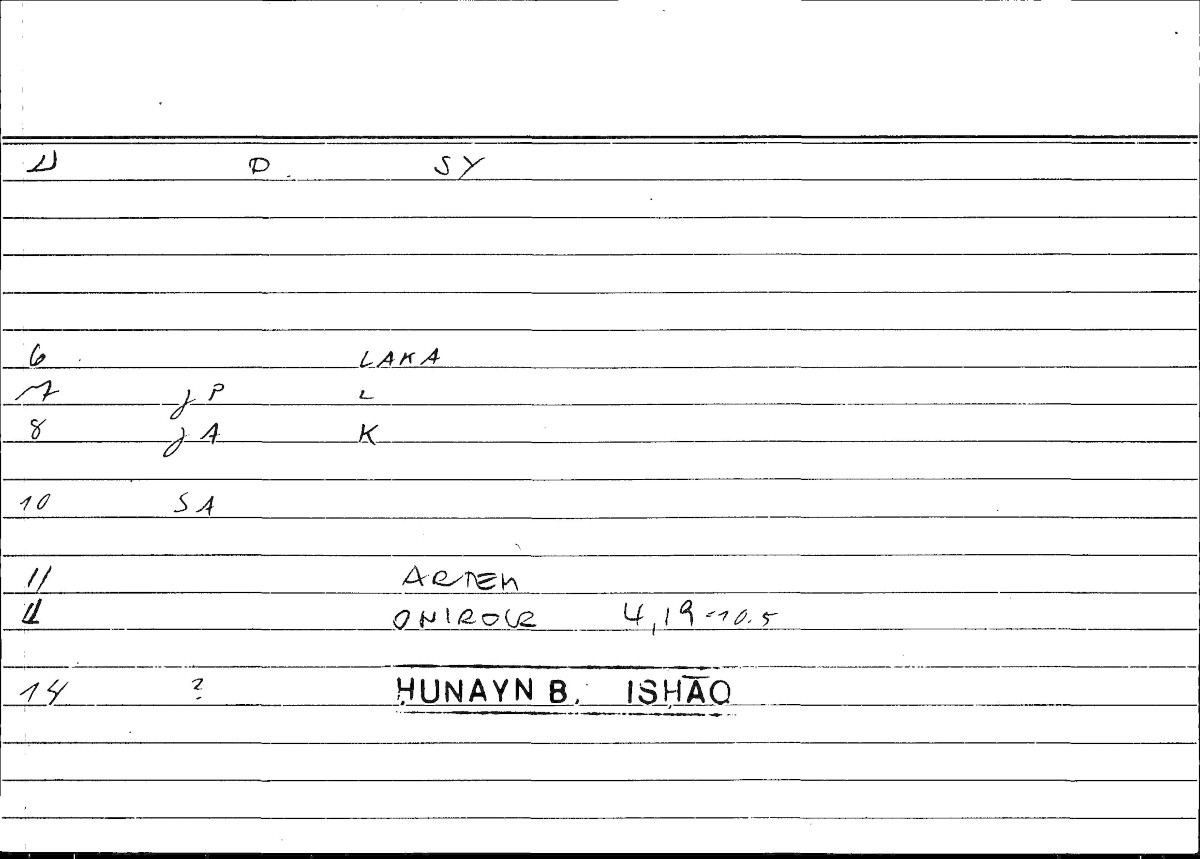 D SY
6 LAKA
7 j P L
8 j A K
10 S A
11 ARTEM
ONIROCR 4,19-10.5
14 ? ḤUNAYN B. ISḤĀQ